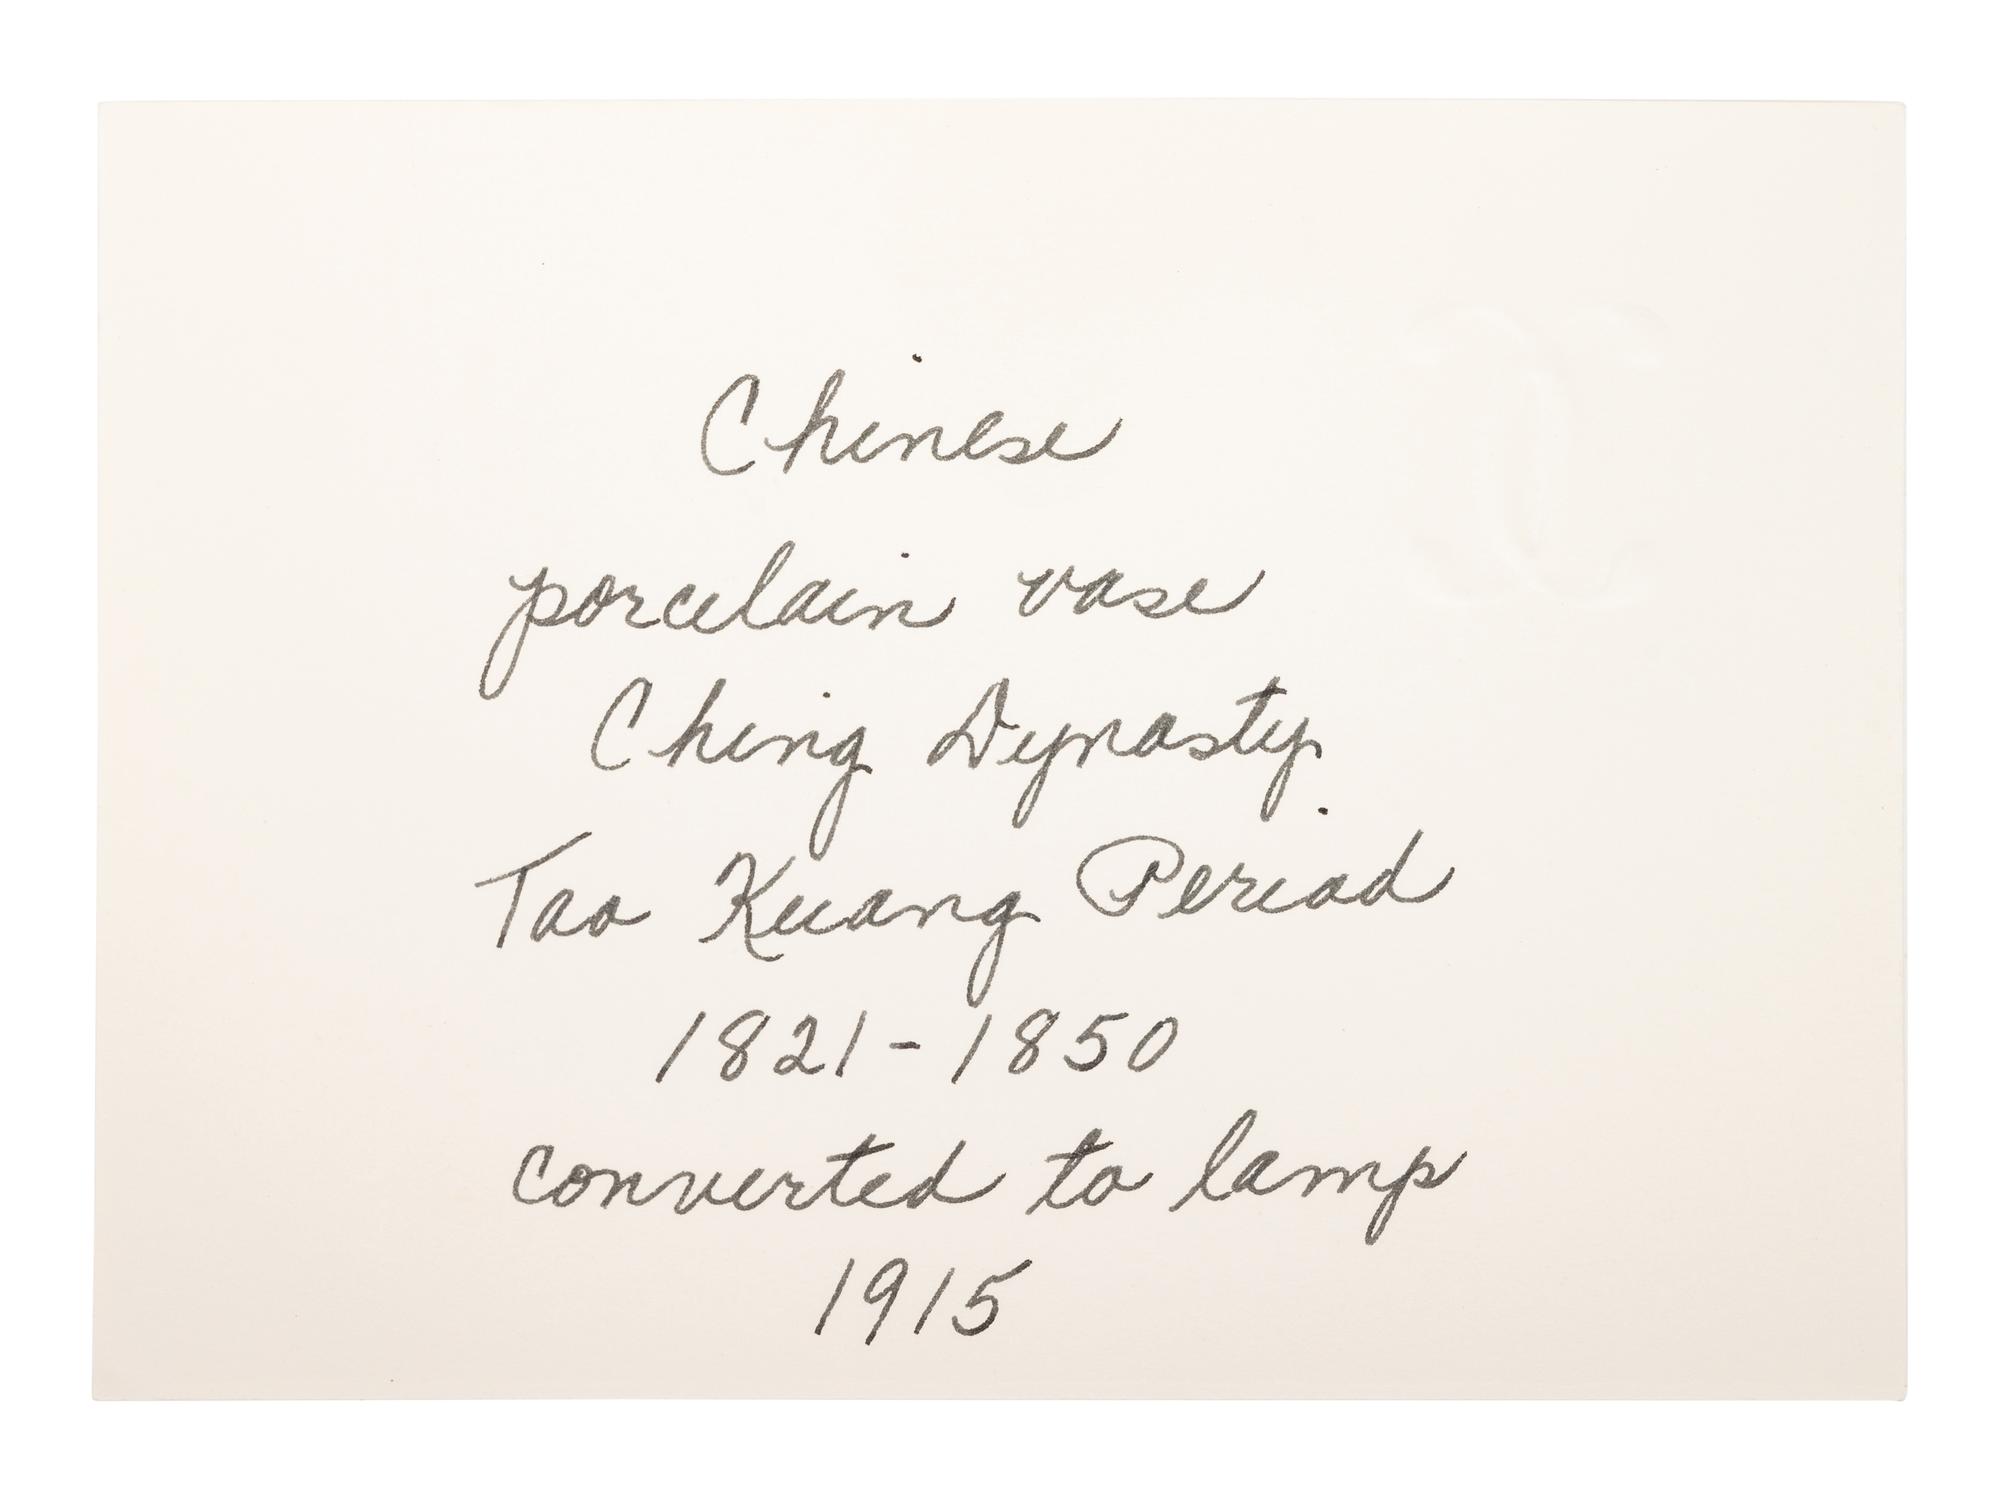 Chinese
porcelain vase
Ching Dynasty
Tao Kuang Period
1821-1850
converted to lamp
1915